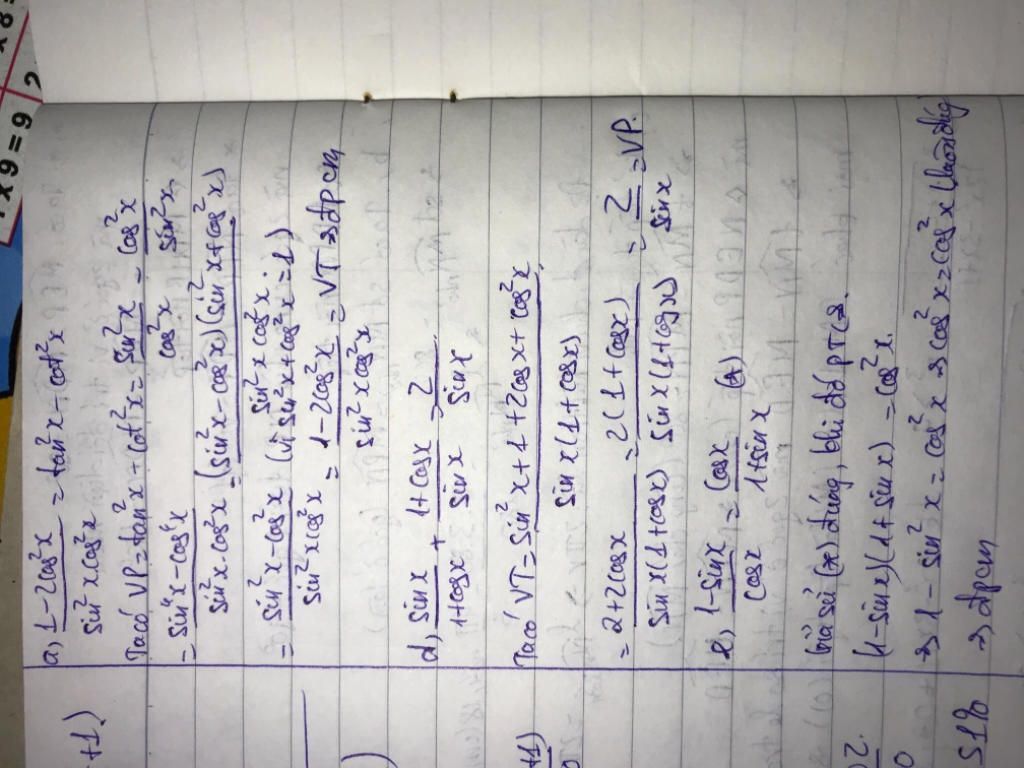 a, (1-2cos²x)/(sin²x cos²x) = tan²x - cot²x
Ta có VP = tan²x - cot²x = sin²x/cos²x - cos²x/sin²x
= (sin⁴x - cos⁴x)/(sin²x.cos²x) = (sin²x - cos²x)(sin²x + cos²x)/(sin²x cos²x)
= (sin²x - cos²x)/(sin²x cos²x) (vì sin²x + cos²x = 1)
= (1-2cos²x)/(sin²x cos²x) = VT => đpcm
d, sinx/(1+cosx) + (1+cosx)/sinx = 2/sinx
Ta có VT = (sin²x + 1 + 2cosx + cos²x)/(sinx(1+cosx))
= (2+2cosx)/(sinx(1+cosx)) = 2(1+cosx)/(sinx(1+cosx)) = 2/sinx = VP.
e, (1-sinx)/cosx = cosx/(1+sinx) (*)
Giả sử (*) đúng, khi đó PT
(1-sinx)(1+sinx) = cos²x
=> 1 - sin²x = cos²x => cos²x = cos²x (luôn đúng)
=> đpcm
+1)
+1)
x 9 = 9